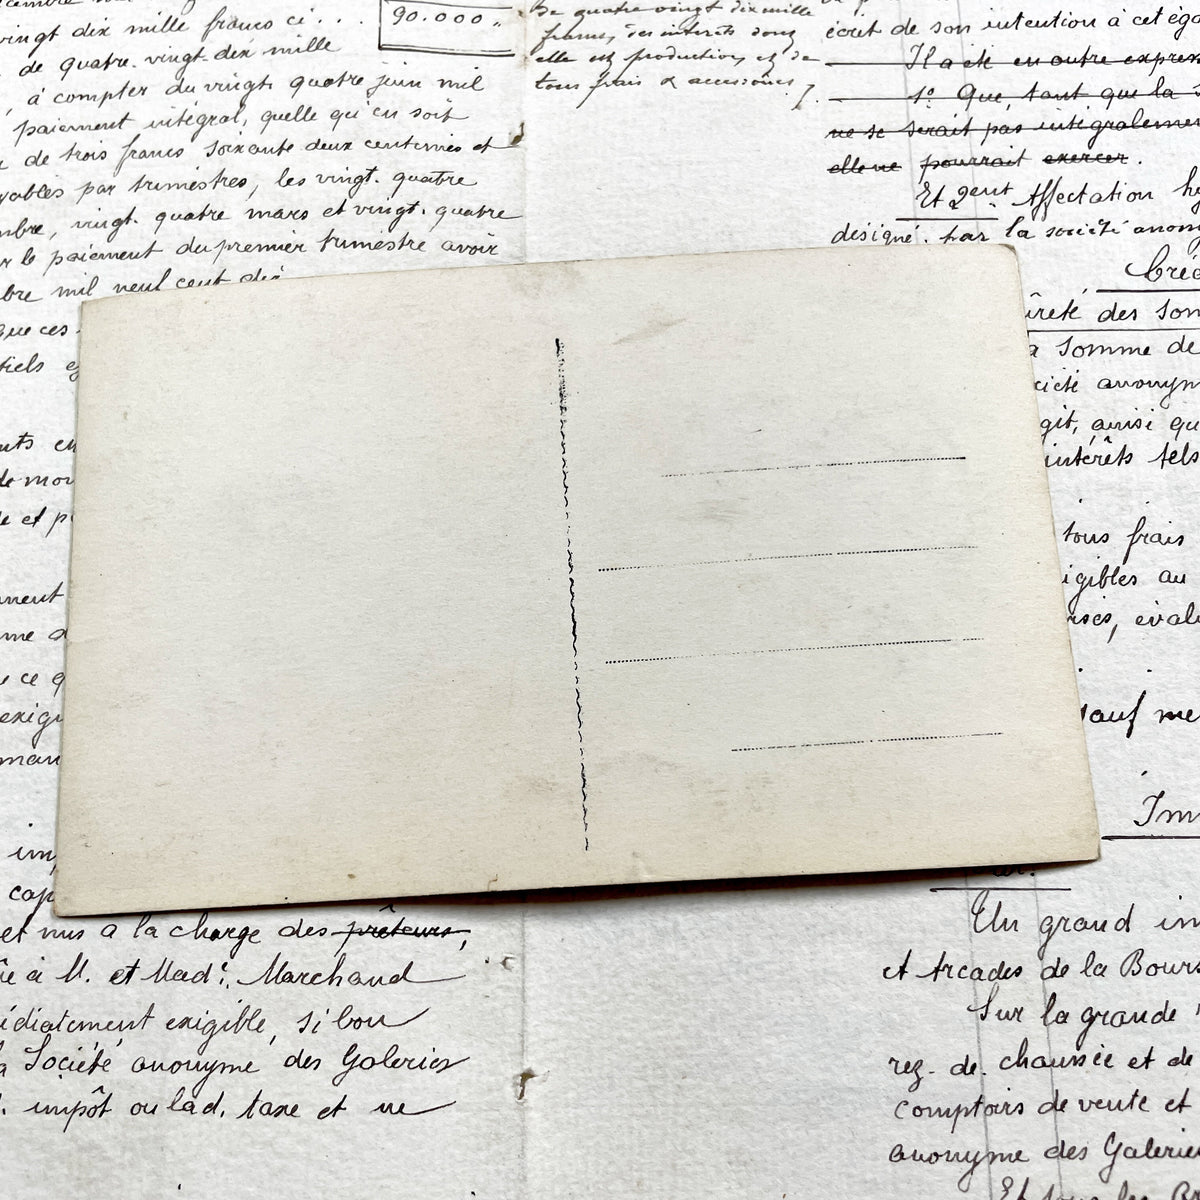 vingt dix mille francs ci...
90.000 „
de quatre-vingt-dix mille
à compter du vingt quatre juin mil
paiement intégral, quelle qu'en soit
de trois francs soixante deux centimes et
yables par trimestres, les vingt-quatre
mbre, vingt quatre mars et vingt-quatre
r le paiement du premier trimestre avoir
bre mil neuf cent dix
que ces
tiels
nts en
de mor
et p
ment
me d
ce q
exigi
man
imp
cap
et mis à la charge des prêteurs,
à M. et Mad.e Marchand
édiatement exigible, si bon
la Société anonyme des Galeries
impôt ou lad. taxe et ne
de quatre vingt dix mille
francs, des intérêts dont
elle est productive, et de
tous frais & accessoires
écret de son intention à cet éga
Il a été en outre expres
1° Que, tant que la S
ne se serait pas intégralemen
elle ne pourrait exercer.
Et gent Affectation hy
désigné par la société anony
Créa
ûreté des som
a somme de
ciété anonym
git, ainsi qu
intérêts tels
tous frais
igibles au
rses, évalu
sauf me
Imm
Un grand im
et Arcades de la Bours
Sur la grande
rez-de-chaussée et de
comptoirs de vente et
anonyme des Galeries
Et tous les